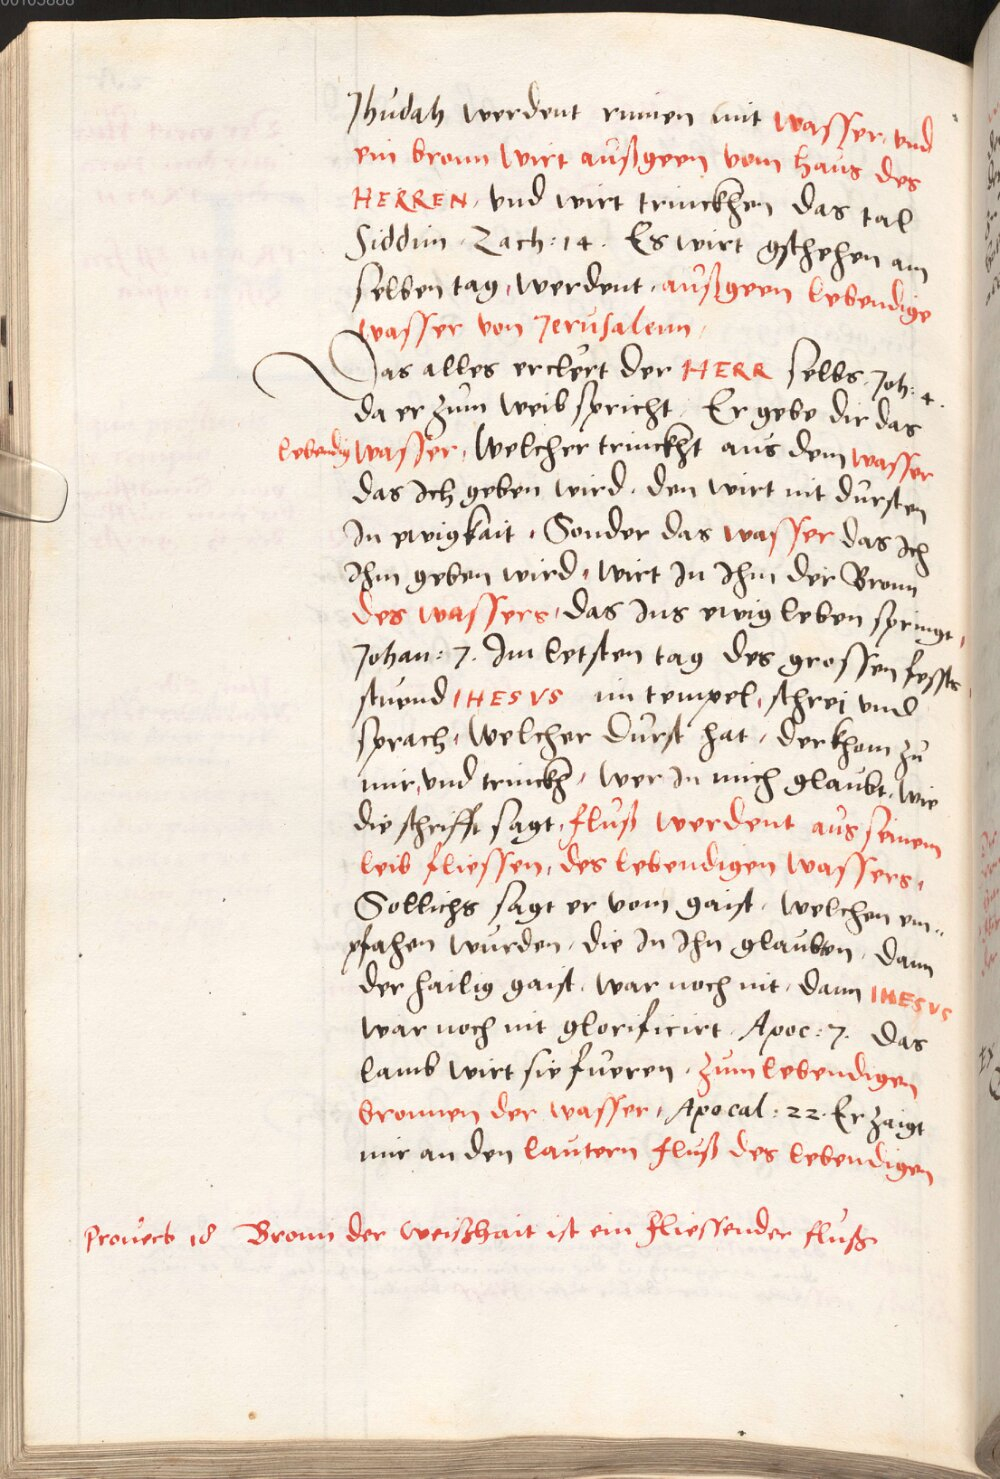 00105888
Jhudah werdent rinnen mit wasser, und
ein bronn wirt außgeen vom haus des
HERREN, und wirt trinckhen das tal
Siddim. Zach: 14. Es wirt gschehen am
selben tag, werdent, außgeen lebendige
wasser von Jerusalem,
Das alles erclert der HERR selbs, Joh: 4.
da er zum weib spricht, Er gebe dir das
lebendig wasser, Welcher trinckht aus dem wasser
das Ich geben wird, den wirt nit dursten
In ewigkait, Sonder das wasser das Ich
Ihm geben wird, wirt In Ihm der Bronn
des wassers, das Ins ewig leben springt,
Johan: 7. Im letsten tag des grossen fessts,
stuend IHESVS im tempel, schrei und
sprach, Welcher durst hat, der khom zu
mir, und trinckh, wer In mich glaubt, wie
die schrifft sagt, fluß werdent aus seinem
leib fliessen, des lebendigen wassers,
Sollichs sagt er vom gaist, welchen em=
pfahen wurden, die In Ihn glauben, dann
der hailig gaist, war noch nit, dann IHESVS
war noch nit glorificirt. Apoc: 7. das
lamb wirt sie fueren, zum lebendigen
bronnen der wasser, Apocal: 22. Er zaigt
mir an den lautern fluß des lebendigen
Prouerb 18 Bronn der weißhait ist ein fliessender fluß